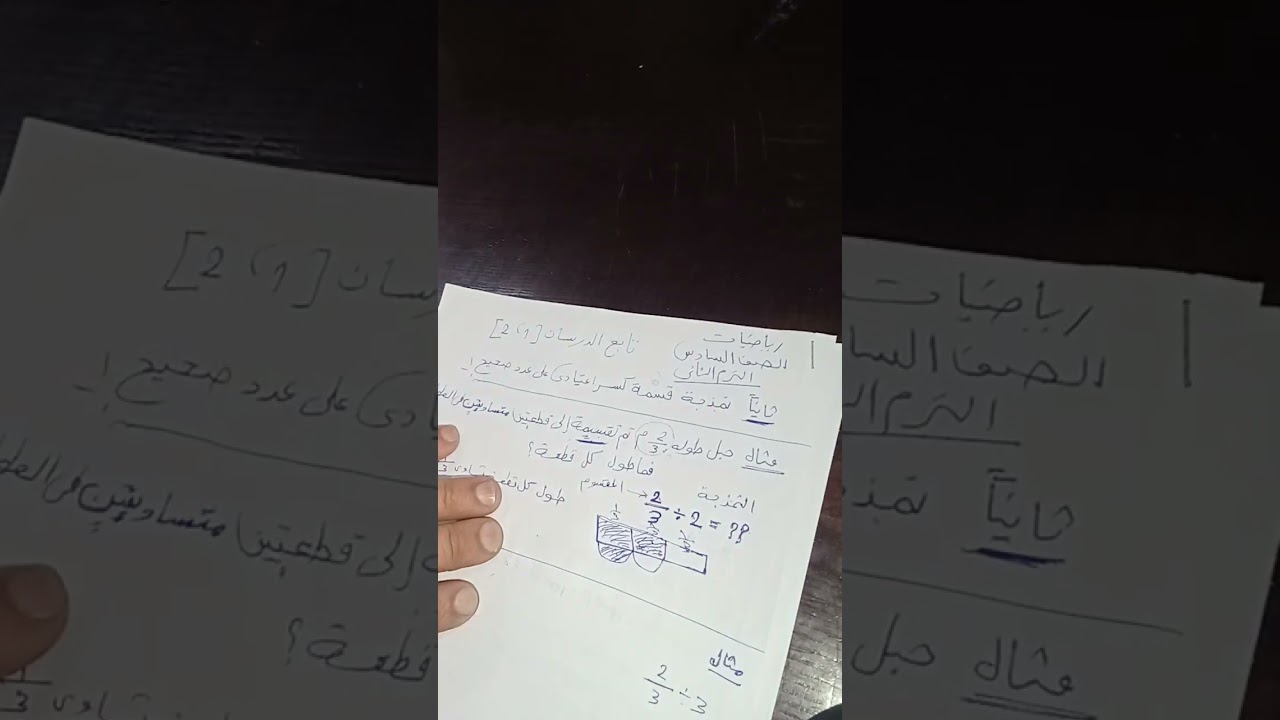 رياضيات
الصف السادس
الترم الثاني
تابع الدرسان [1، 2]
ثانيًا نمذجة قسمة كسر اعتيادى على عدد صحيح :-
مثال حبل طوله 2/3 م تم تقسيمة إلى قطعتين متساويتين فى الطول
فما طول كل قطعة ؟
النمذجة
المقسوم ← 2/3 ÷ 2 = ??
طول كل قطعة تساوى 1/3
1/3 1/3 1/3
مثال
2/3 ÷ 3